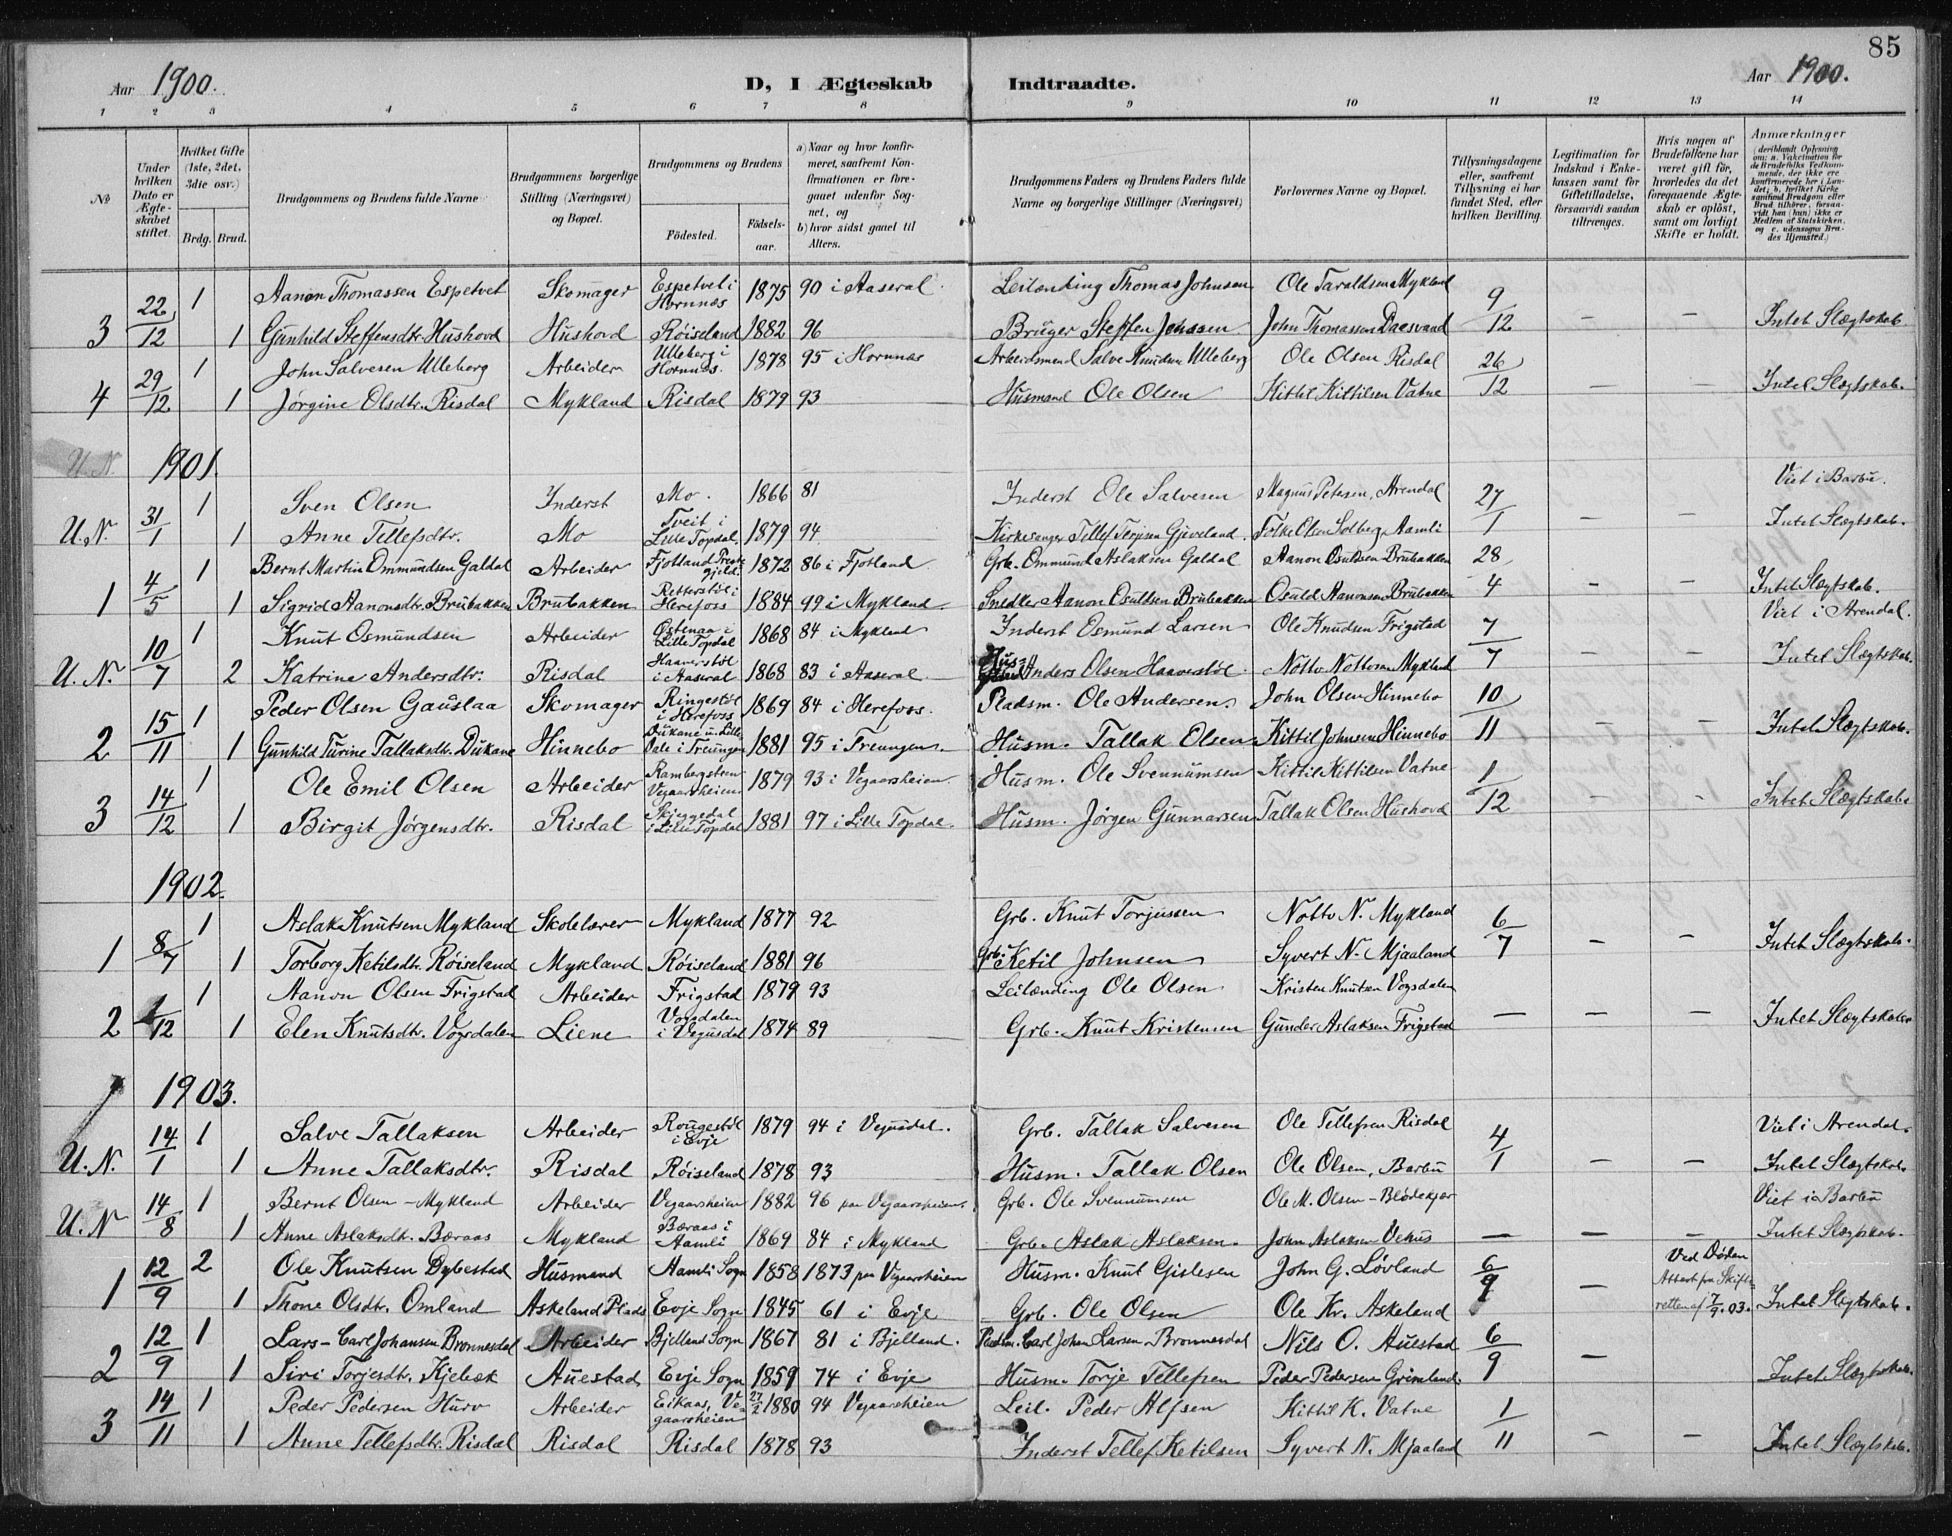 85
Aar 1900. D, I Ægteskab Indtraadte. Aar 1900.
1 2 3 4 5 6 7 8 9 10 11 12 13 14
No
Under hvilken Dato er Ægteskabet stiftet.
Hvilket Gifte (1ste, 2det, 3die osv.)
Brdg. Brud.
Brudgommens og Brudens fulde Navne
Brudgommens borgerlige Stilling (Næringsvei) og Bopæl.
Brudgommens og Brudens
Fødested. Fødselsaar.
a) Naar og hvor konfirmeret, saafremt Konfirmationen er foregaaet udenfor Sognet, og
b) hvor sidst gaaet til Alters.
Brudgommens Faders og Brudens Faders fulde Navne og borgerlige Stillinger (Næringsvei)
Forlovernes Navne og Bopæl.
Tillysningsdagene eller, saafremt Tillysning ei har fundet Sted, efter hvilken Bevilling.
Legitimation for Indskud i Enkekassen samt for Giftetilladelse, forsaavidt saadan tiltrænges.
Hvis nogen af Brudefolkene har været gift før, hvorledes da det foregaaende Ægteskab er opløst, samt om lovligt Skifte er holdt.
Anmærkninger (deriblandt Oplysning om: a. Vakcination for de Brudefolks Vedkommende, der ikke ere konfirmerede her i Landet; b. hvilket Kirkesamfund Brudgom eller Brud tilhører, forsaavidt han (hun) ikke er Medlem af Statskirken, og c. udensogns Brudes Hjemsted.)
3 22/12 1 Aanon Thomassen Espetvet Skomager Espetvet i Hornnæs 1875 90 i Aaseral. Leilænding Thomas Johnsen Ole Taraldsen Mykland 9/12 – –
1 Gunhild Steffensdtr. Hushovd Hushovd Røiseland 1882 96 Bruger Steffen Jonssen John Thomassen Daesvand Intet Slægtskab.
4 29/12 1 John Salvesen Ulleberg Arbeider Ulleberg i Hornnæs. 1878 95 i Hornnæs Arbeidsmand Salve Knudsen Ulleberg Ole Olsen Risdal 26/12 – –
1 Jørgine Olsdtr. Risdal Mykland Risdal 1879 93 Husmand Ole Olsen Kittil Kittilsen Vatne Intet Slægtskab.
U.N. 1901.
U.N. 31/1 1 Sven Olsen Inderst Mo. 1866 81 Inderst Ole Salvesen Magnus Petersen, Arendal 27/1 – – Viet i Barbu.
1 Anne Tellefsdtr. Mo Tveit i Lille Topdal 1879 94. Kirkesanger Tellef Terjusen Gjeveland. Folke Olsen Solberg, Aamli Intet Slægtskab.
1 4/5 1 Bernt Martin Ommundsen Galdal Arbeider Fjotland Prestegjeld 1872 86 i Fjotland Grb. Ommund Aslaksen Galdal Aanon Osuldsen Brubakken 28/4 – –
1 Sigrid Aanonsdtr. Brubakken Brubakken Retterstöl i Herefoss 1884 99 i Mykland Snedker Aanon Osuldsen Brubakken Osuld Aanonsen Brubakken Intet Slægtskab.
U.N. 10/7 1 Knut Osmundsen Arbeider Østenaa i Lille Topdal 1868 84 i Mykland Inderst Osmund Larsen Ole Knudsen Frigstad 7/7 – – Viet i Arendal.
2 Katrine Andersdtr. Risdal Haaverstöl i Aaseral 1868 83 i Aaseral. Anders Olsen Haaverstöl. Notto Nottosen Mykland Intet Slægtskab.
2 15/11 1 Peder Olsen Gauslaa Skomager Ringestöl i Herefoss 1869 84 i Herefoss. Pladsm. Ole Andersen. John Olsen Hinnebo 10/11 – –
1 Gunhild Turine Tallaksdtr. Dukane Hinnebo Dukane u. Lilledale i Treungen 1881 95 i Treungen. Husm. Tallak Olsen. Kittil Johnsen Hinnebo Intet Slægtskab.
3 14/12 1 Ole Emil Olsen Arbeider Rambergstren Vegaarsheien 1879 93 i Vegaarsheien. Husm. Ole Svennumsen Kittil Kittilsen Vatne 1/12 – –
1 Birgit Jørgensdtr. Risdal Skjeggedal i Lille Topdal 1881 97 i Lille Topdal. Husm. Jørgen Gunnarsen Tallak Olsen Hushovd Intet Slægtskab.
1902.
1 8/7 1 Aslak Knutsen Mykland Skolelærer Mykland 1877 92 Grb. Knut Torjussen Notto N. Mykland 6/7 – –
1 Torborg Ketilsdtr. Røiseland Mykland Røiseland 1881 96 Grb. Ketil Johnsen Syvert N. Mjaaland Intet Slægtskab.
2 1/12 1 Aanon Olsen Frigstad Arbeider Frigstad 1879 93 Leilænding Ole Olsen Kristen Knutsen Vogsdalen – – –
1 Elen Knutsdtr. Vogsdalen Liene Vogsdalen i Vegusdal 1874 89 Grb. Knut Kristensen Gunder Aslaksen Frigstad Intet Slægtskab.
1903.
U.N. 14/1 1 Salve Tallaksen Arbeider Rougestöl i Evje 1879 94 i Vegusdal. Grb. Tallak Salvesen Ole Tellefsen Risdal 4/1 – – Viet i Arendal.
1 Anne Tallaksdtr. Risdal Røiseland 1878 93 Husm. Tallak Olsen Ole Olsen, Barbu Intet Slægtskab.
U.N 14/8 1 Bernt Olsen – Mykland Arbeider Vegaarsheien 1882 96 paa Vegaarsheien. Grb. Ole Svennumsen Ole M. Olsen – Blødekjær Viet i Barbu
1 Anne Aslaksdtr. Bæraas Mykland Bæraas i Aamli 1869 84 i Mykland Grb. Aslak Aslaksen. John Aslaksen Vehus – – – Intet Slægtskab.
1 12/9 2 Ole Knutsen Dybestad Husmand Aamli Sogn 1858 1873 paa Vegaarsheien Husm. Knut Gislesen John G. Løvland 6/9 – Ved Døden
1 Thone Olsdtr. Omland Askeland Plads Evje Sogn 1845 61 i Evje Grb. Ole Olsen Ole Kr. Askeland Attest fra Skifteretten af 7/9. 03. Intet Slægtskab.
2 12/9 1 Lars – Carl Johansen Bronnesdal Arbeider Bjelland Sogn 1867 81 i Bjelland. Pladsm. Carl Johan Larsen Bronnesdal Nils O. Auestad 6/9 –
1 Siri Torjesdtr. Kjebæk Auestad Evje Sogn 1859 74 i Evje Husm. Torje Tellefsen Peder Pedersen Grimland. Intet Slægtskab.
3 14/11 1 Peder Pedersen Hurv Arbeider Eikaas, Vegaarsheien 27/2 1880 94 Vegaarsheien Leil. Peder Alfsen Kittil K. Vatne 1/11 – –
1 Anne Tellefsdtr. Risdal Risdal Risdal 1878 93 Inderst Tellef Ketilsen Syvert N. Mjaaland Intet Slægtskab.